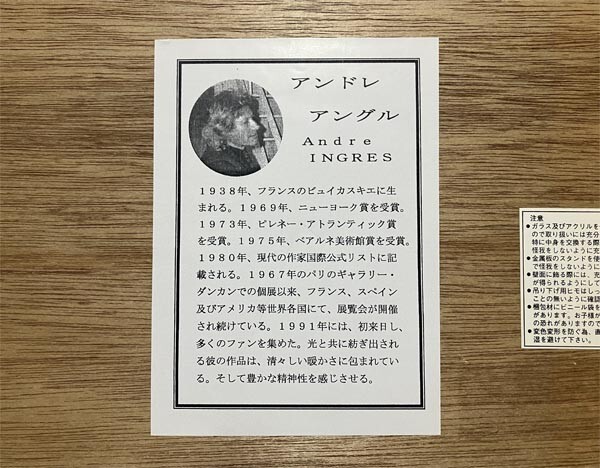 アンドレ
アングル
Andre
INGRES
1938年、フランスのピュイカスキエに生
まれる。1969年、ニューヨーク賞を受賞。
1973年、ピレネー・アトランティック賞
を受賞。1975年、ベアルネ美術館賞を受賞。
1980年、現代の作家国際公式リストに記
載される。1967年のパリのギャラリー・
ダンカンでの個展以来、フランス、スペイン
及びアメリカ等世界各国にて、展覧会が開催
され続けている。1991年には、初来日し、
多くのファンを集めた。光と共に紡ぎ出され
る彼の作品は、清々しい暖かさに包まれてい
る。そして豊かな精神性を感じさせる。
注意
●ガラス及びアクリルを
ので取り扱いには充分
特に中身を交換する際
怪我をしないように充
●金属板のスタンドを使
で怪我をしないように
●壁面に飾る際には、充
が得られるようにして
●吊り下げ用ヒモはしっ
ことの無いように確認
●梱包材にビニール袋を
があります。お子様が
の恐れがありますので
●変色変形を防ぐ為、直
湿を避けて下さい。